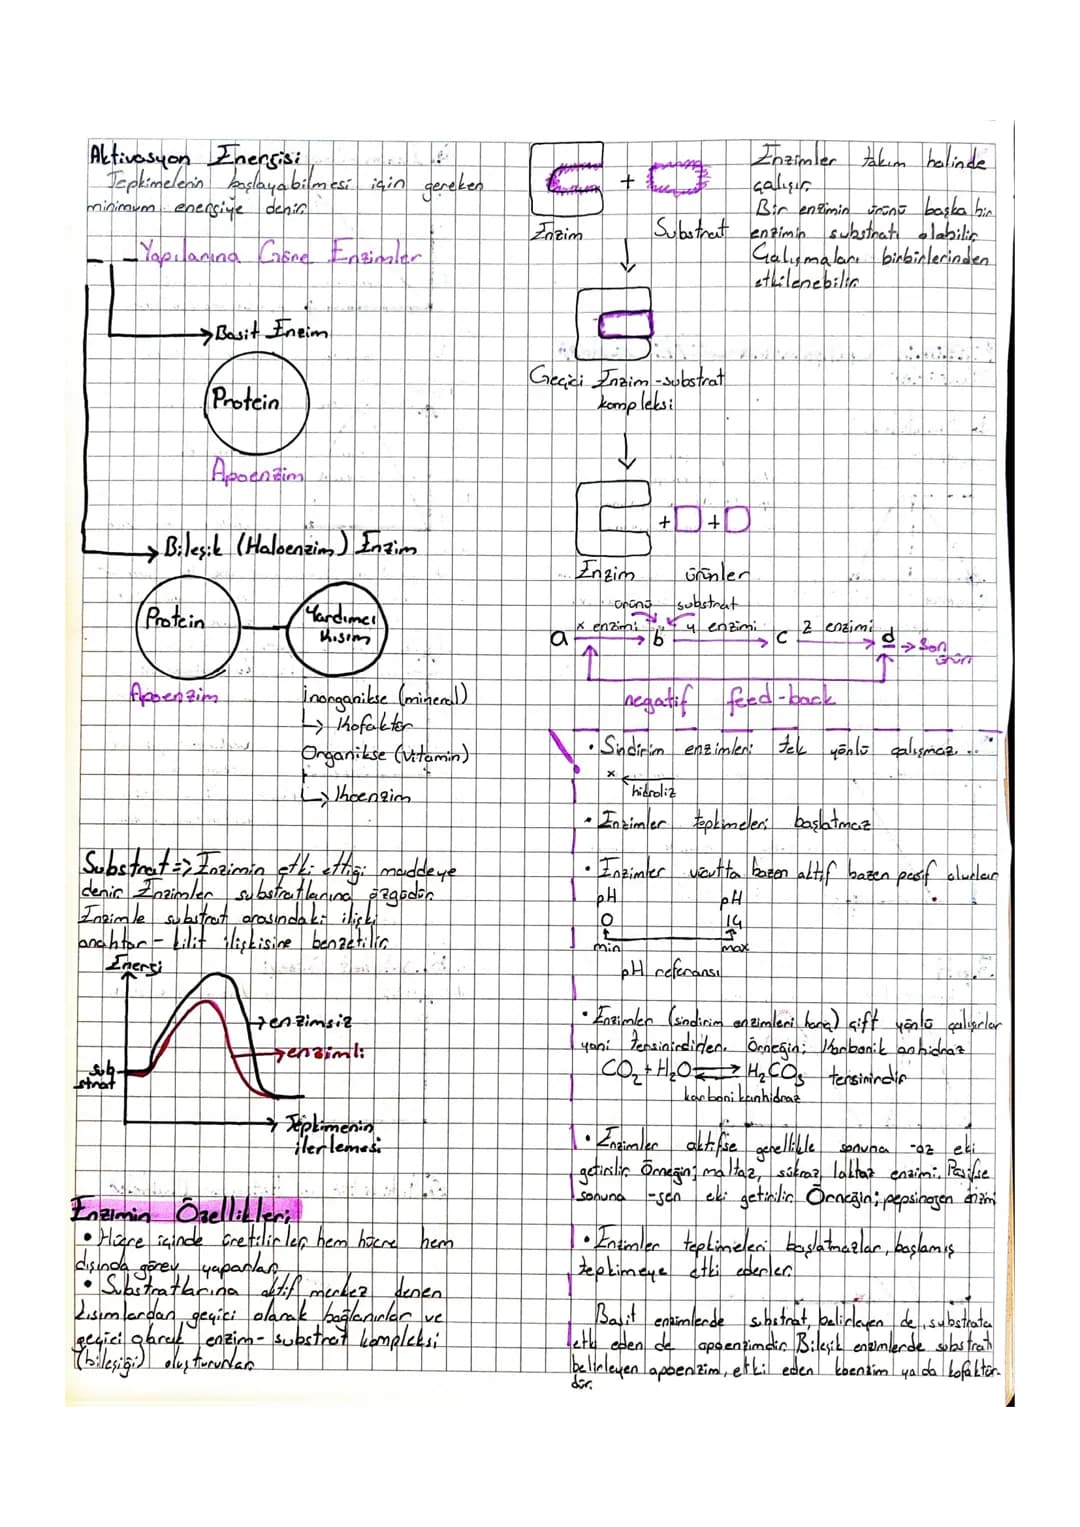 Aktivasyon Enerjisi
Tepkimelerin başlayabilmesi için gereken
minimum enerjiye denir.
Yapılarına Göre Enzimler
Basit Enzim
Protein
Apoenzim
Bileşik (Haloenzim) Enzim
Protein
Yardımcı
Kısım
Apoenzim
İnorganikse (mineral)
↳ Kofaktör
Organikse (vitamin)
↳ Koenzim
Substrat => Enzimin etki ettiği maddeye
denir. Enzimler substratlarına özgüdür.
Enzimle substrat arasındaki ilişki
anahtar - kilit ilişkisine benzetilir.
Enerji
enzimsiz
enzimli
sub
strat
Tepkimenin
ilerlemesi
Enzimin Özellikleri;
• Hücre içinde üretilirler, hem hücre hem
dışında görev yaparlar.
• Substratlarına aktif merkez denen
kısımlardan geçici olarak bağlanırlar ve
geçici olarak enzim-substrat kompleksi
(bileşiği) oluştururlar.
+
Enzim
Substrat
Geçici Enzim-substrat
kompleksi
+ +
Enzim ürünler
Enzimler takım halinde
çalışır.
Bir enzimin ürünü başka bir
enzimin substratı olabilir.
Çalışmaları birbirlerinden
etkilenebilir.
ürünü substrat
a x enzimi b y enzimi c z enzimi d → Son
ürün
negatif feed-back
• Sindirim enzimleri tek yönlü çalışmaz.
x
hidroliz
• Enzimler tepkimeleri başlatmaz
• Enzimler vücutta bazen aktif bazen pasif olurlar
pH pH
0 14
min max
pH referansı
• Enzimler (sindirim enzimleri hariç) çift yönlü çalışırlar
yani tersinirdirler. Örneğin; Karbonik anhidraz
CO₂ + H₂O ⇄ H₂CO₃ tersinirdir
karbonikanhidraz
• Enzimler aktifse genellikle sonuna -az eki
getirilir. Örneğin; maltaz, sükraz, laktaz enzimi. Pasifse
sonuna -jen eki getirilir. Örneğin; pepsinojen enzimi
• Enzimler tepkimeleri başlatmazlar, başlamış
tepkimeye etki ederler.
Basit enzimlerde substrat, belirleyen de, substrata
etki eden de apoenzimdir. Bileşik enzimlerde substratı
belirleyen apoenzim, etki eden koenzim ya da kofaktör-
dür.